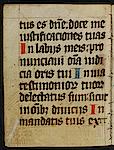 tus es dñe: doce me
iustificationes tuas
In labijs meis: pro
nunciaui oīa iudi
cia oris tui In uia
testimoniorꝫ tuorꝫ
delectatus sum: sicut
in oībꝫ diuicijs In
mandatis tuis exer